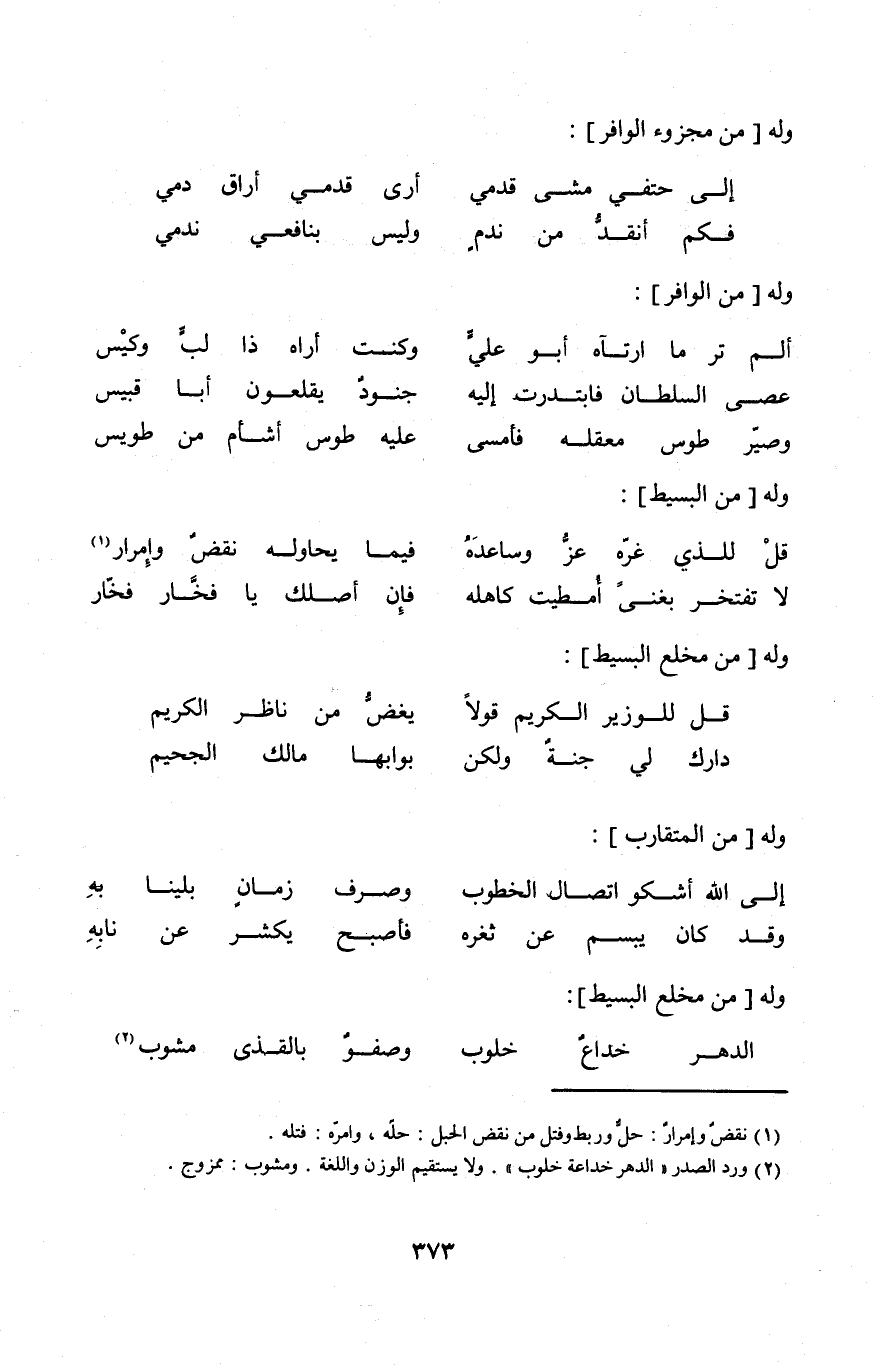 وله [ من مجزوء الوافر ] :
إلى حتفي مشى قدمي أرى قدمي أراق دمي
فكم أنقدُّ من ندمٍ وليس بنافعي ندمي
وله [ من الوافر ] :
ألم تر ما ارتآه أبو عليٍّ وكنت أراه ذا لبٍّ وكيْس
عصى السلطان فابتدرت إليه جنودٌ يقلعون أبا قبيس
وصيّر طوس معقله فأمسى عليه طوس أشأم من طويس
وله [ من البسيط ] :
قلْ للذي غرّه عزٌّ وساعدَهُ فيما يحاوله نقضٌ وإمرار (١)
لا تفتخر بغنىً أُمطيت كاهله فإن أصلك يا فخَّار فخّار
وله [ من مخلع البسيط ] :
قل للوزير الكريم قولاً يغضُّ من ناظر الكريم
دارك لي جنةٌ ولكن بوابها مالك الجحيم
وله [ من المتقارب ] :
إلى الله أشكو اتصال الخطوب وصرف زمانٍ بلينا بهِ
وقد كان يبسم عن ثغره فأصبح يكشر عن نابِهِ
وله [ من مخلع البسيط ] :
الدهر خداعٌ خلوب وصفوٌ بالقذى مشوب (٢)
(١) نقضٌ وإمرارٌ : حلٌّ وربط وفتل من نقض الحبل : حلّه ، وامرّه : فتله .
(٢) ورد الصدر « الدهر خداعة خلوب » . ولا يستقيم الوزن واللغة . ومشوب : ممزوج .
٣٧٣